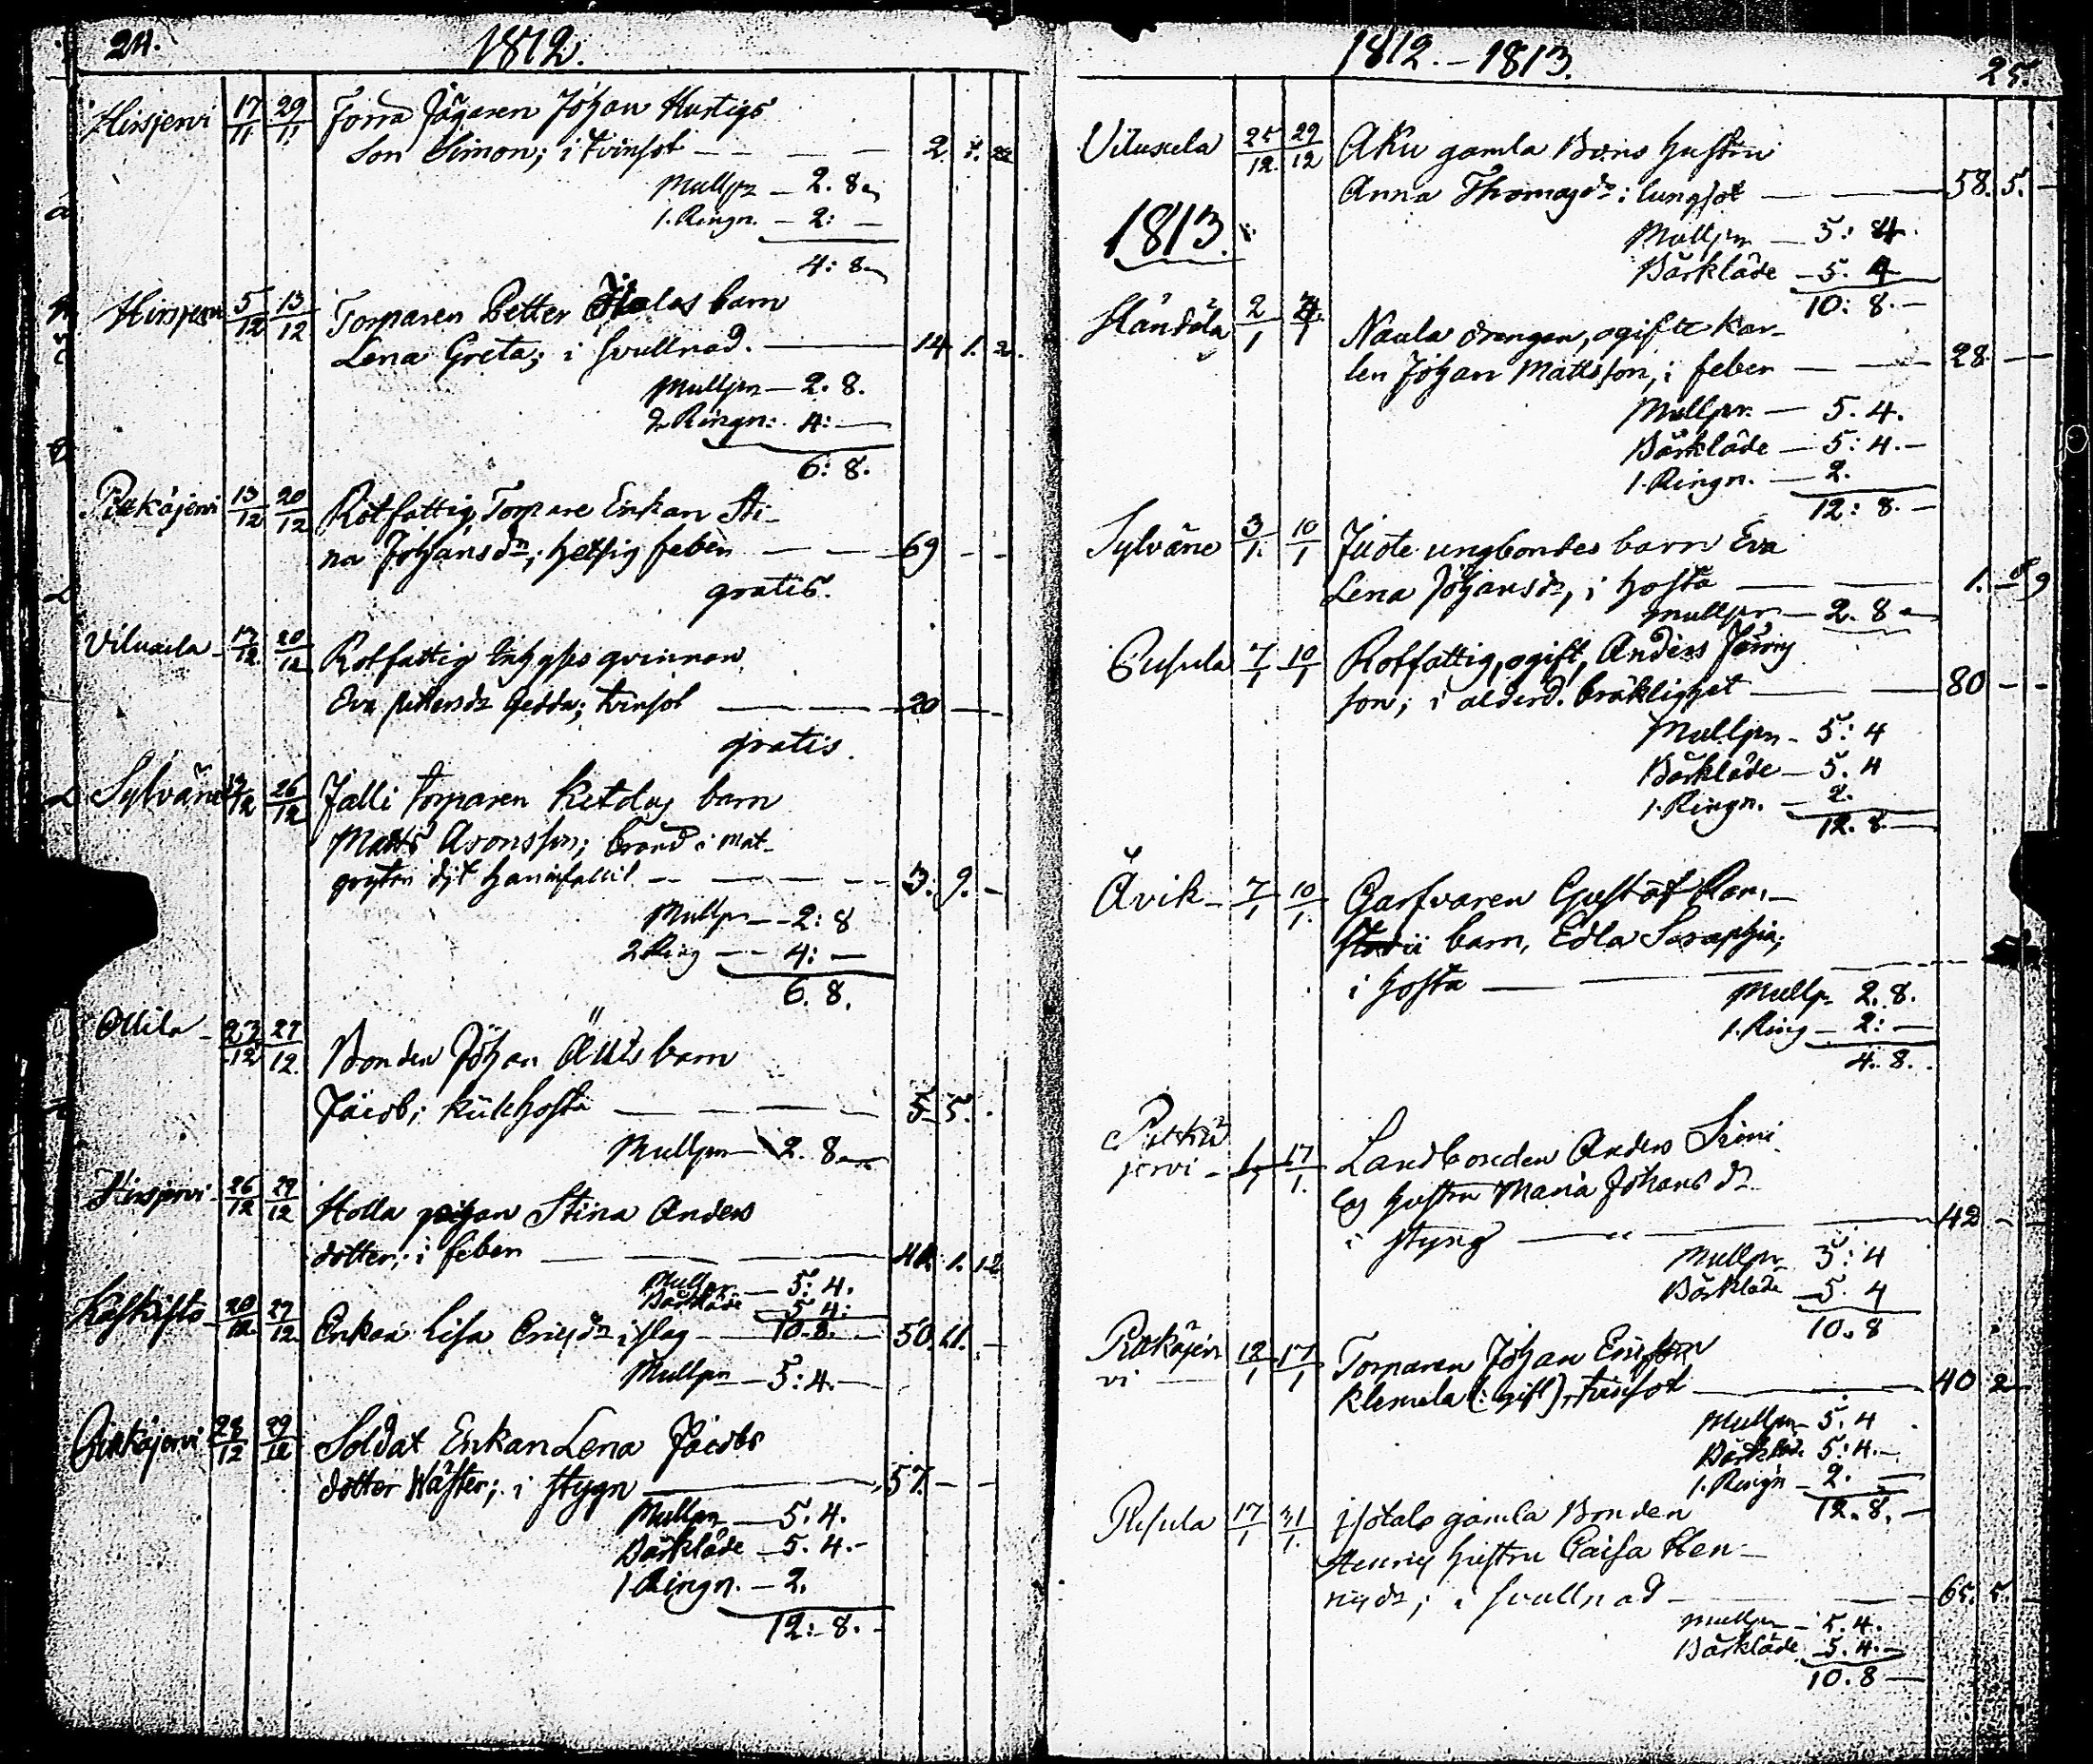 24.
1812.
Hirsjervi 17/11 29/11 Torra Jägaren Johan Hurtigs
Son Simon; i tvinsot — — — 2. 7. 22
Mullpn — 2. 8 —
1. Ringn. — 2: —
4: 8 —
Hirsjerv 5/12 13/12 Torparen Petter barn
Lena Greta; i svullnad. — 14. 1. 2.
Mullpn — 2. 8.
2 Ringn: 4: —
6: 8.
Pitkäjervi 13/12 20/12 Rotfattig Torpare Enkan Sti-
na Johansdr; hetsig feber — — 69 - -
gratis.
Viluxela 17/12 20/12 Rotfattig Inhyses qvinnan
Eva Pettersdr Gedda; tvinsot — — 20 - -
gratis.
Sylväne 26/12 Jalli torparen barn
Matts Aronsson; brand i mat-
grytan dit han infallit — — 3. 9. -
Mullpn — 2: 8
2 Ring — 4: —
6. 8.
Ollila 23/12 27/12 Bonden Johan barn
Jacob; kikhosta — — — 5. 5. -
Mullpn — 2. 8 —
Hirsjervi 26/12 29/12 Holla pigan Stina Anders
dotter; i feber — — 1. 12
Mullpn — 5: 4.
Bårkläde — 5 4:
10. 8.
Kaskisto 20/12 27/12 Enkan Lisa Ericsdr i slag — 50. 11. -
Mullpn — 5: 4. —
Pitkäjervi 23/12 29/12 Soldat Enkan Lena Jacobs
dotter Wäster; i stygn — 57. - -
Mullpn — 5. 4.
Bårkläde — 5. 4. -
1 Ringn. — 2.
12: 8. -
1812. – 1813.
25.
Viluxela 25/12 29/12 Aku gamla Bons hustru
Anna Thomasdr i lungsot — — 58. 5. -
Mullpn — 5: 4.
Bårkläde — 5. 4
10: 8. —
1813.
Händälä 2/1 Naula drengen, ogifte kar-
len Johan Mattsson, i feber — — 28 — —
Mullpn. — 5. 4.
Bårkläde — 5: 4. —
1. Ringn. — 2.
12: 8. —
Sylväne 3/1 10/1 Juote ungbondes barn Eva
Lena Johansdr, i hosta — — 1. 9
mullpn — 2. 8 —
Pusula 7/1 10/1 Rotfattig, ogift, Anders
son; i ålderd. bräklighet — — 80 - -
Mullpn - 5: 4
Bårkläde — 5. 4
1. Ringn. — 2.
12. 8. —
Åvik — 7/1 10/1 Garfvaren Gustaf
barn, Edla Seraphia;
i hosta — — —
Mullpn 2. 8.
1. Ring — 2: —
4. 8.
Pitkä
jervi — 17/1 Landbonden Anders Simi
Eg hustru Maria Johansdr
i styng — — — 42 - -
Mullpn 5: 4
Bårkläde — 5. 4
10. 8
Pitkäjer
vi 12/1 17/1 Torparen Johan Ericsson
Klemela (: gift), tvinsot — — 40 2 —
Mullpn — 5. 4
Bårkläde 5: 4. —
1. Ringn — 2. —
12. 8. —
Pusula 17/1 31/1 Isotalo gamla Bonden
Henrics hustru Caisa Hen-
ricsdr; i svullnad — — 65. 5. -
mullpn — 5. 4.
Bårkläde — 5. 4. —
10. 8 —